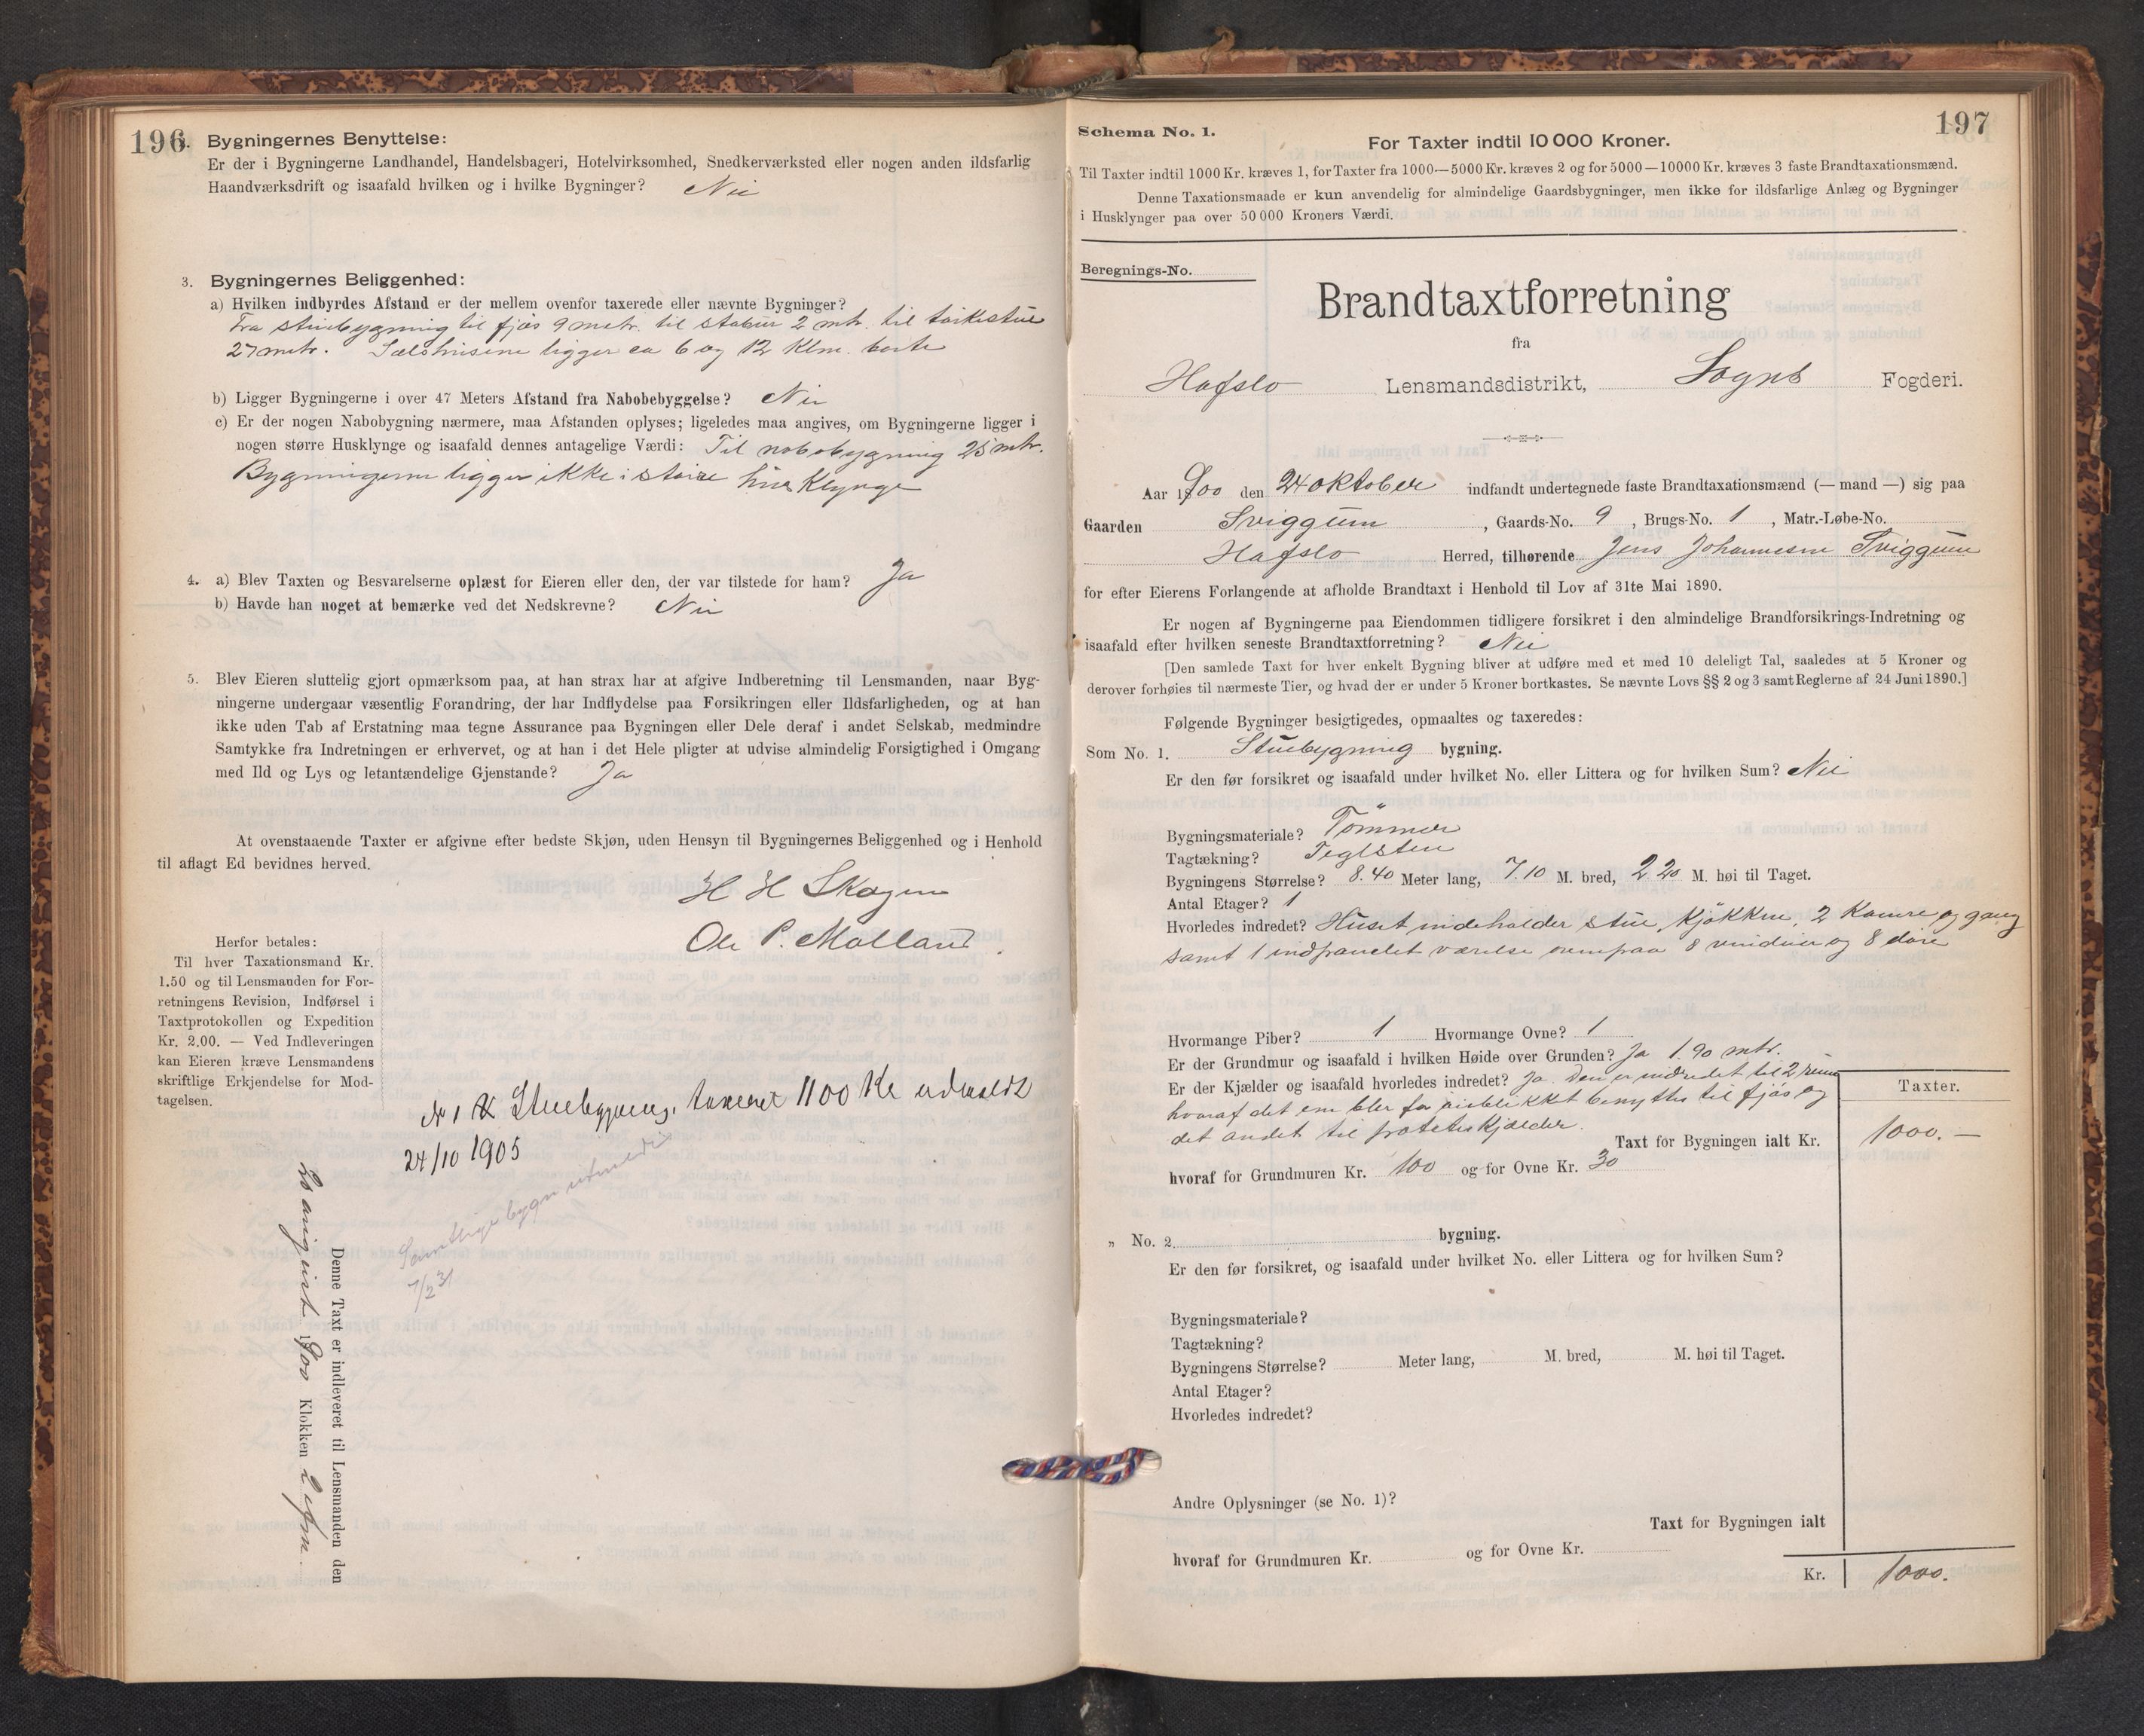 196
2. Bygningernes Benyttelse:
Er der i Bygningerne Landhandel, Handelsbageri, Hotelvirksomhed, Snedkerværksted eller nogen anden ildsfarlig
Haandværksdrift og isaafald hvilken og i hvilke Bygninger? Nei
3. Bygningernes Beliggenhed:
a) Hvilken indbyrdes Afstand er der mellem ovenfor taxerede eller nævnte Bygninger?
Fra stuebygning til fjös 9 metr. til stabur 2 mtr. til törkestue
27 metr. Sælshusene ligger ca 6 og 12 Klm. borte
b) Ligger Bygningerne i over 47 Meters Afstand fra Nabobebyggelse? Nei
c) Er der nogen Nabobygning nærmere, maa Afstanden oplyses; ligeledes maa angives, om Bygningerne ligger i
nogen større Husklynge og isaafald dennes antagelige Værdi: Til nabobygning 25 mtr.
Bygningerne ligger ikke i större hus klynge
4. a) Blev Taxten og Besvarelserne oplæst for Eieren eller den, der var tilstede for ham? Ja
b) Havde han noget at bemærke ved det Nedskrevne? Nei
5. Blev Eieren sluttelig gjort opmærksom paa, at han strax har at afgive Indberetning til Lensmanden, naar Byg-
ningerne undergaar væsentlig Forandring, der har Indflydelse paa Forsikringen eller Ildsfarligheden, og at han
ikke uden Tab af Erstatning maa tegne Assurance paa Bygningen eller Dele deraf i andet Selskab, medmindre
Samtykke fra Indretningen er erhvervet, og at han i det Hele pligter at udvise almindelig Forsigtighed i Omgang
med Ild og Lys og letantændelige Gjenstande? Ja
At ovenstaaende Taxter er afgivne efter bedste Skjøn, uden Hensyn til Bygningernes Beliggenhed og i Henhold
til aflagt Ed bevidnes herved.
H H Skagen
Ole P. Molland
Herfor betales:
Til hver Taxationsmand Kr.
1.50 og til Lensmanden for For-
retningens Revision, Indførsel i
Taxtprotokollen og Expedition
Kr. 2,00. — Ved Indleveringen
kan Eieren kræve Lensmandens
skriftlige Erkjendelse for Mod-
tagelsen.
No 1 Stuebygning, taxeret 1100 Kr udmeldt
24/10 1905
Samtlige bygn utmeldt
7/2 31
Denne Taxt er indleveret til Lensmanden den
august 1900 Klokken
197
Schema No. 1.
For Taxter indtil 10 000 Kroner.
Til Taxter indtil 1000 Kr. kræves 1, for Taxter fra 1000—5000 Kr. kræves 2 og for 5000—10000 Kr. kræves 3 faste Brandtaxationsmænd.
Denne Taxationsmaade er kun anvendelig for almindelige Gaardsbygninger, men ikke for ildsfarlige Anlæg og Bygninger
i Husklynger paa over 50 000 Kroners Værdi.
Beregnings-No.
Brandtaxtforretning
fra
Hafslo Lensmandsdistrikt, Sogns Fogderi.
Aar 1900 den 24 oktober indfandt undertegnede faste Brandtaxationsmænd (— mand —) sig paa
Gaarden Sviggum, Gaards-No. 9, Brugs-No. 1, Matr.-Løbe-No.
Hafslo Herred, tilhørende Jens Johannesen Sviggum
for efter Eierens Forlangende at afholde Brandtaxt i Henhold til Lov af 31te Mai 1890.
Er nogen af Bygningerne paa Eiendommen tidligere forsikret i den almindelige Brandforsikrings-Indretning og
isaafald efter hvilken seneste Brandtaxtforretning? Nei
[Den samlede Taxt for hver enkelt Bygning bliver at udføre med et med 10 deleligt Tal, saaledes at 5 Kroner og
derover forhøies til nærmeste Tier, og hvad der er under 5 Kroner bortkastes. Se nævnte Lovs §§ 2 og 3 samt Reglerne af 24 Juni 1890.]
Følgende Bygninger besigtigedes, opmaaltes og taxeredes:
Som No. 1. Stuebygning bygning.
Er den før forsikret og isaafald under hvilket No. eller Littera og for hvilken Sum? Nei
Bygningsmateriale? Tömmer
Tagtækning? Teglsten
Bygningens Størrelse? 8.40 Meter lang, 7.10 M. bred, 2.20 M. høi til Taget.
Antal Etager? 1
Hvorledes indredet? Huset indeholder stue, kjökken, 2 kamre og gang
samt 1 indpanelet værelse ovenpaa 8 vinduer og 8 döre
Hvormange Piber? 1 Hvormange Ovne? 1
Er der Grundmur og isaafald i hvilken Høide over Grunden? Ja 1.90 mtr.
Er der Kjælder og isaafald hvorledes indredet? Ja. Den er indredet til 2 rum
hvoraf det ene blev for öieblikket benyttes til fjös og
det andet til potetes kjælder.
Taxter.
Taxt for Bygningen ialt Kr. 1000.—
hvoraf for Grundmuren Kr. 100 og for Ovne Kr. 30
„ No. 2. bygning.
Er den før forsikret, og isaafald under hvilket No. eller Littera og for hvilken Sum?
Bygningsmateriale?
Tagtækning?
Bygningens Størrelse? Meter lang, M. bred, M. høi til Taget.
Antal Etager?
Hvorledes indredet?
Andre Oplysninger (se No. 1)?
Taxt for Bygningen ialt
hvoraf for Grundmuren Kr. og for Ovne Kr.
Kr. 1000.